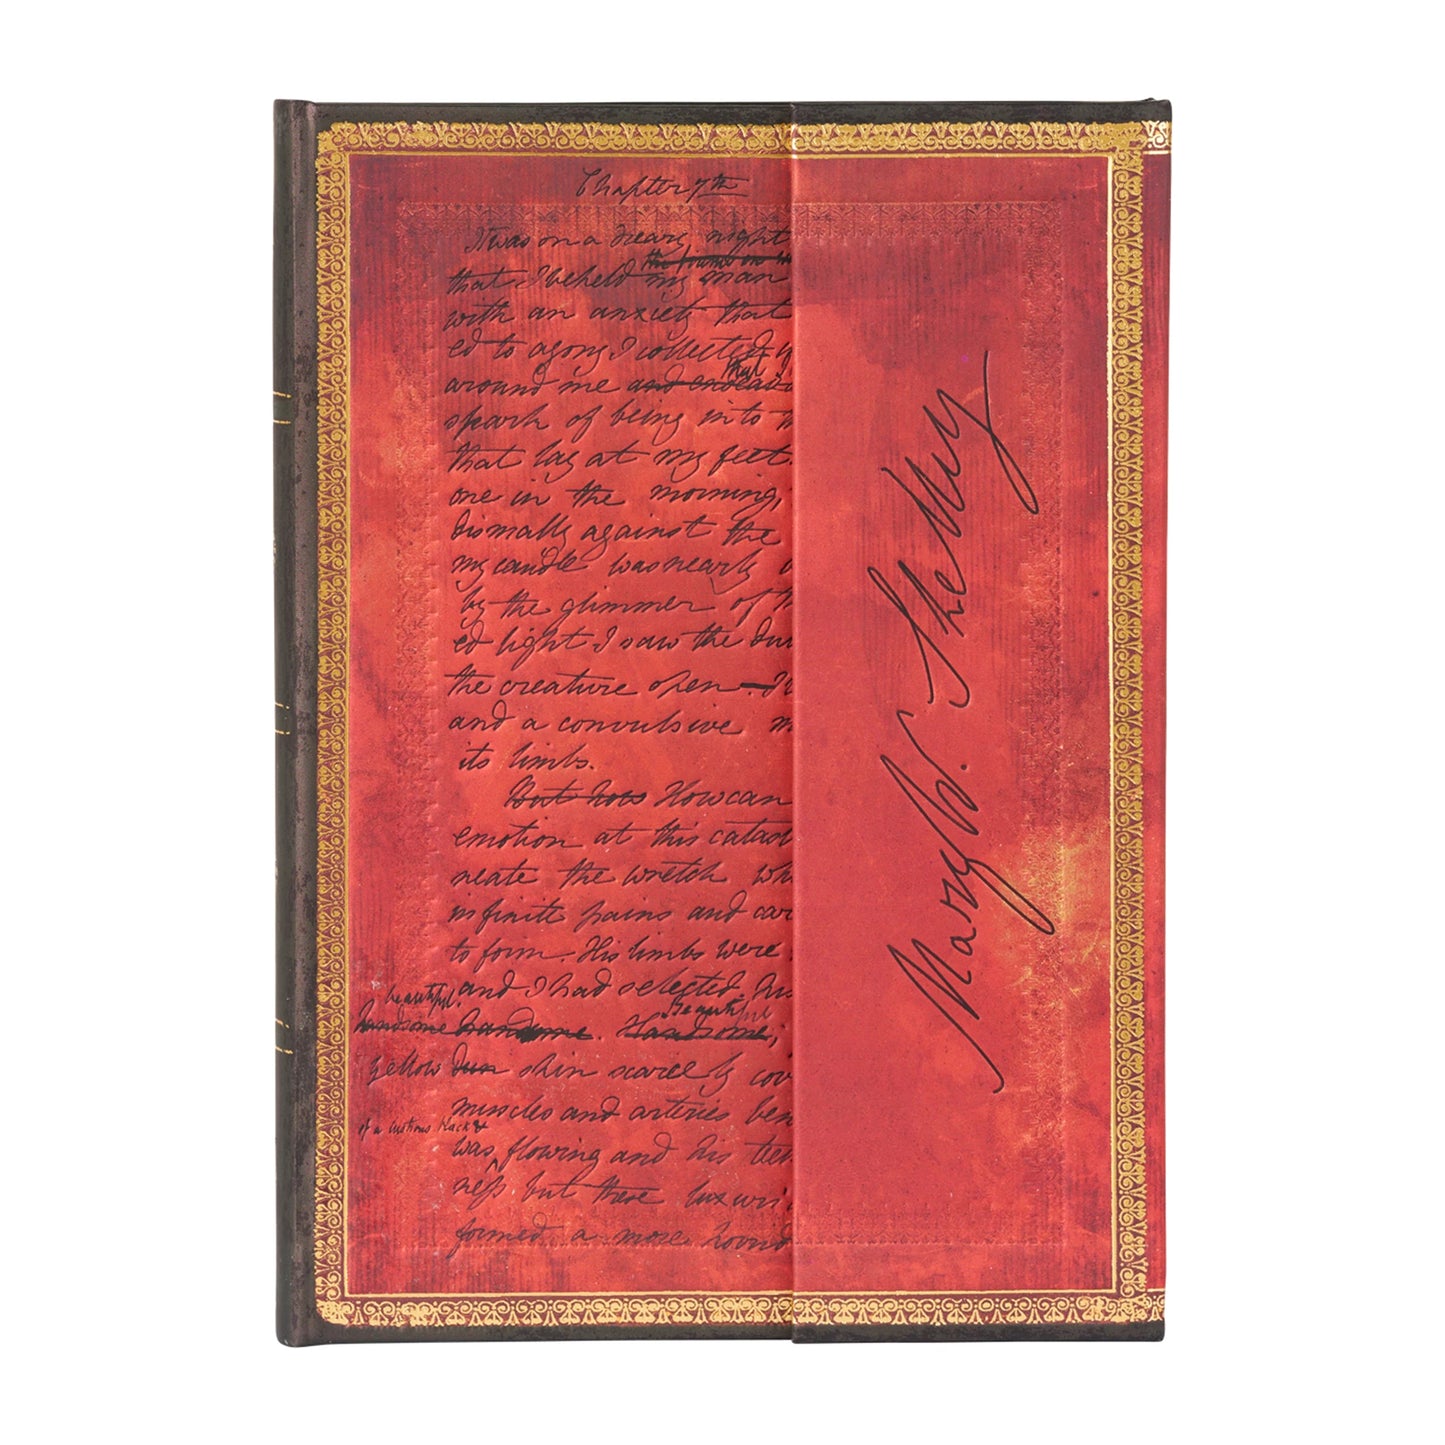 Chapter 7th
It was on a dreary night
that I beheld the frame on wh my man
with an anxiety that
ed to agony I collected
around me and endeavo that
spark of being into th
that lay at my feet.
one in the morning,
dismally against the
my candle was nearly
by the glimmer of th
ed light I saw the dul
the creature open I
and a convulsive m
its limbs.
But how How can
emotion at this catast
neate the wretch wh
infinite pains and car
to form. His limbs were
and I had selected his
beautiful. Beautiful
handsome handsome. Handsome;
yellow dun skin scarcely cov
muscles and arteries ben
of a lustrous black &
was flowing and his tee
ness but these luxuri
formed a more horrid
Mary W. Shelley